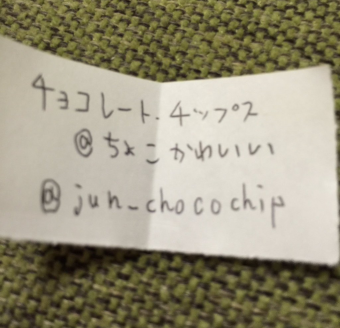 チョコレート.チップス
@ちょこかわいい
@jun_chocochip